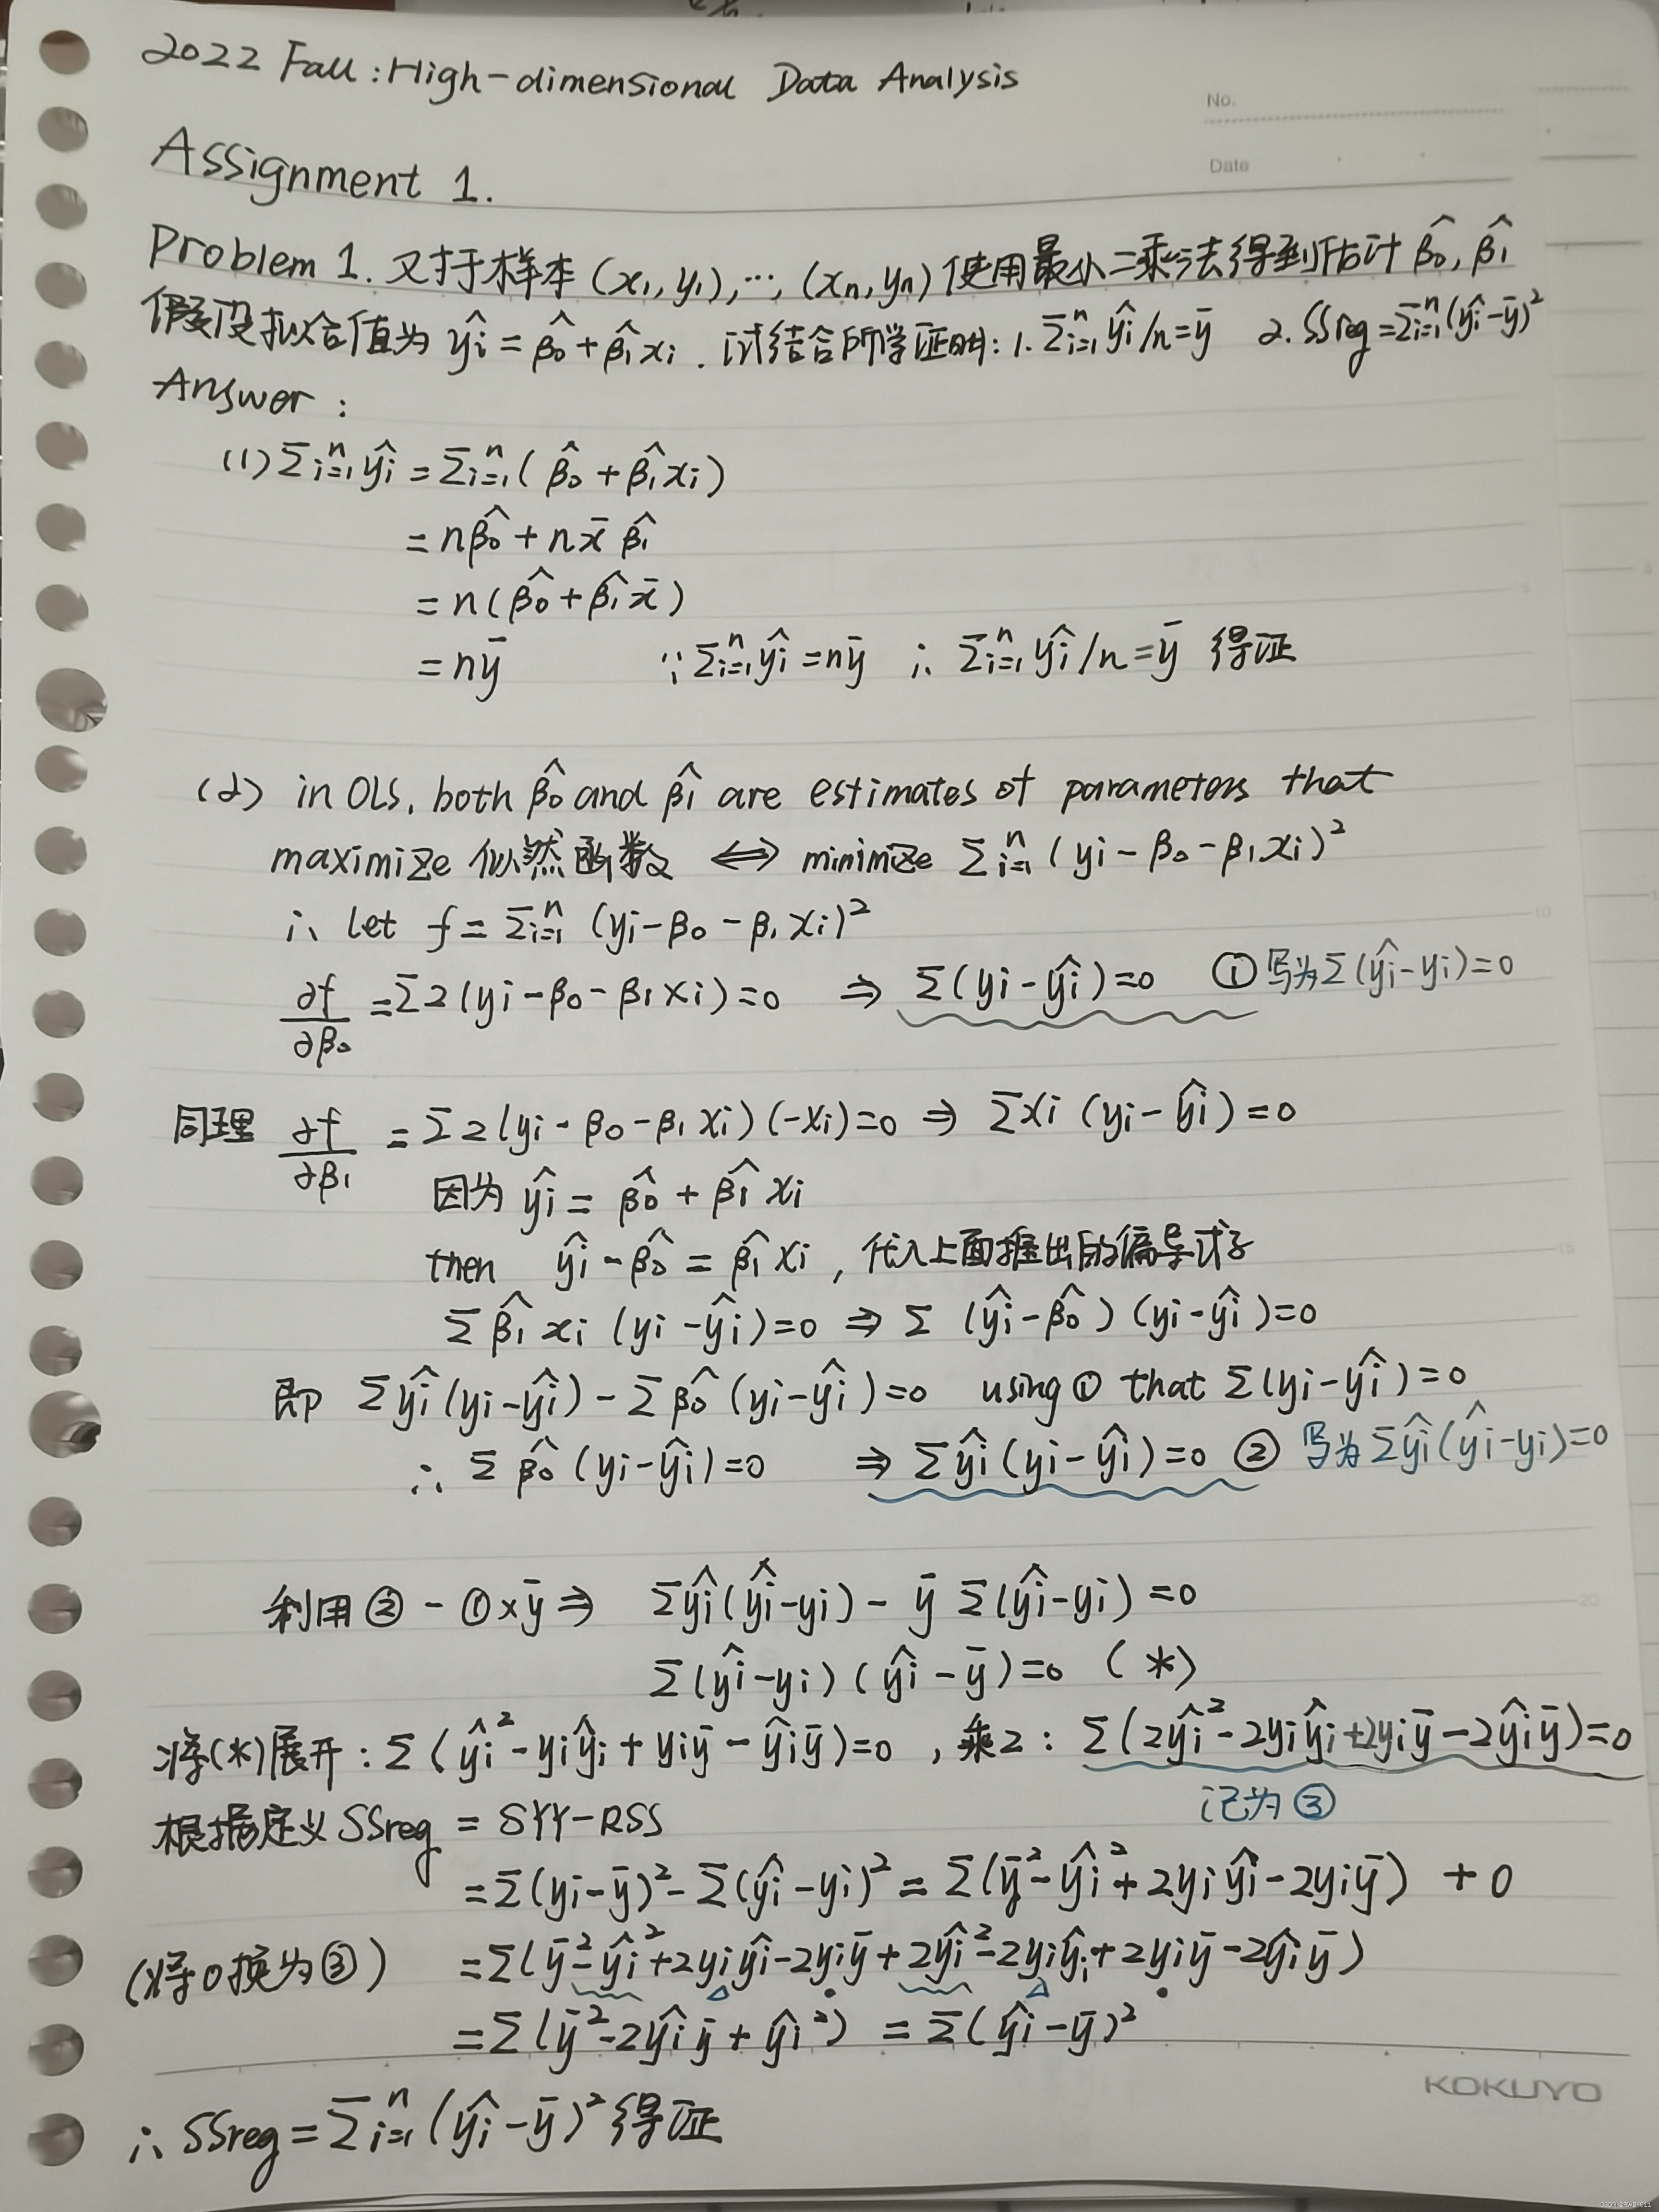 2022 Fall : High-dimensional Data Analysis
No.
Date
Assignment 1.
Problem 1. 对于样本 (x₁, y₁), ⋯, (xₙ, yₙ) 使用最小二乘法得到估计 β̂₀, β̂₁
假设拟合值为 ŷᵢ = β̂₀ + β̂₁xᵢ . 试结合所学证明: 1. Σᵢ₌₁ⁿ ŷᵢ/n = ȳ 2. SSreg = Σᵢ₌₁ⁿ(ŷᵢ-ȳ)²
Answer :
(1) Σᵢ₌₁ⁿ ŷᵢ = Σᵢ₌₁ⁿ( β̂₀ + β̂₁xᵢ)
= nβ̂₀ + nx̄ β̂₁
= n(β̂₀ + β̂₁x̄)
= nȳ ∵ Σᵢ₌₁ⁿ ŷᵢ = nȳ ∴ Σᵢ₌₁ⁿ ŷᵢ/n = ȳ 得证
(2) in OLS, both β̂₀ and β̂₁ are estimates of parameters that
maximize 似然函数 ⟺ minimize Σᵢ₌₁ⁿ (yᵢ - β₀ - β₁xᵢ)²
∴ let f = Σᵢ₌₁ⁿ (yᵢ - β₀ - β₁xᵢ)²
∂f/∂β₀ = Σ2(yᵢ - β₀ - β₁xᵢ) = 0 ⇒ Σ(yᵢ - ŷᵢ) = 0 ① 写为 Σ(ŷᵢ - yᵢ) = 0
同理 ∂f/∂β₁ = Σ2(yᵢ - β₀ - β₁xᵢ)(-xᵢ) = 0 ⇒ Σxᵢ (yᵢ - ŷᵢ) = 0
因为 ŷᵢ = β̂₀ + β̂₁xᵢ
then ŷᵢ - β̂₀ = β̂₁xᵢ , 代入上面推出的偏导式子
Σ β̂₁ xᵢ (yᵢ - ŷᵢ) = 0 ⇒ Σ (ŷᵢ - β̂₀) (yᵢ - ŷᵢ) = 0
即 Σŷᵢ(yᵢ - ŷᵢ) - Σβ̂₀(yᵢ - ŷᵢ) = 0 using ① that Σ(yᵢ - ŷᵢ) = 0
∴ Σ β̂₀ (yᵢ - ŷᵢ) = 0 ⇒ Σŷᵢ(yᵢ - ŷᵢ) = 0 ② 写为 Σŷᵢ(ŷᵢ - yᵢ) = 0
利用 ② - ① × ȳ ⇒ Σŷᵢ(ŷᵢ - yᵢ) - ȳ Σ(ŷᵢ - yᵢ) = 0
Σ(ŷᵢ - yᵢ) (ŷᵢ - ȳ) = 0 (*)
将(*)展开 : Σ(ŷᵢ² - yᵢŷᵢ + yᵢȳ - ŷᵢȳ) = 0 , 乘2 : Σ(2ŷᵢ² - 2yᵢŷᵢ + 2yᵢȳ - 2ŷᵢȳ) = 0
记为 ③
根据定义 SSreg = SYY - RSS
= Σ(yᵢ - ȳ)² - Σ(ŷᵢ - yᵢ)² = Σ(ȳ² - ŷᵢ² + 2yᵢŷᵢ - 2yᵢȳ) + 0
(将0换为③) = Σ(ȳ² - ŷᵢ² + 2yᵢŷᵢ - 2yᵢȳ + 2ŷᵢ² - 2yᵢŷᵢ + 2yᵢȳ - 2ŷᵢȳ)
= Σ(ȳ² - 2ŷᵢȳ + ŷᵢ²) = Σ(ŷᵢ - ȳ)²
KOKUYO
∴ SSreg = Σᵢ₌₁ⁿ (ŷᵢ - ȳ)² 得证